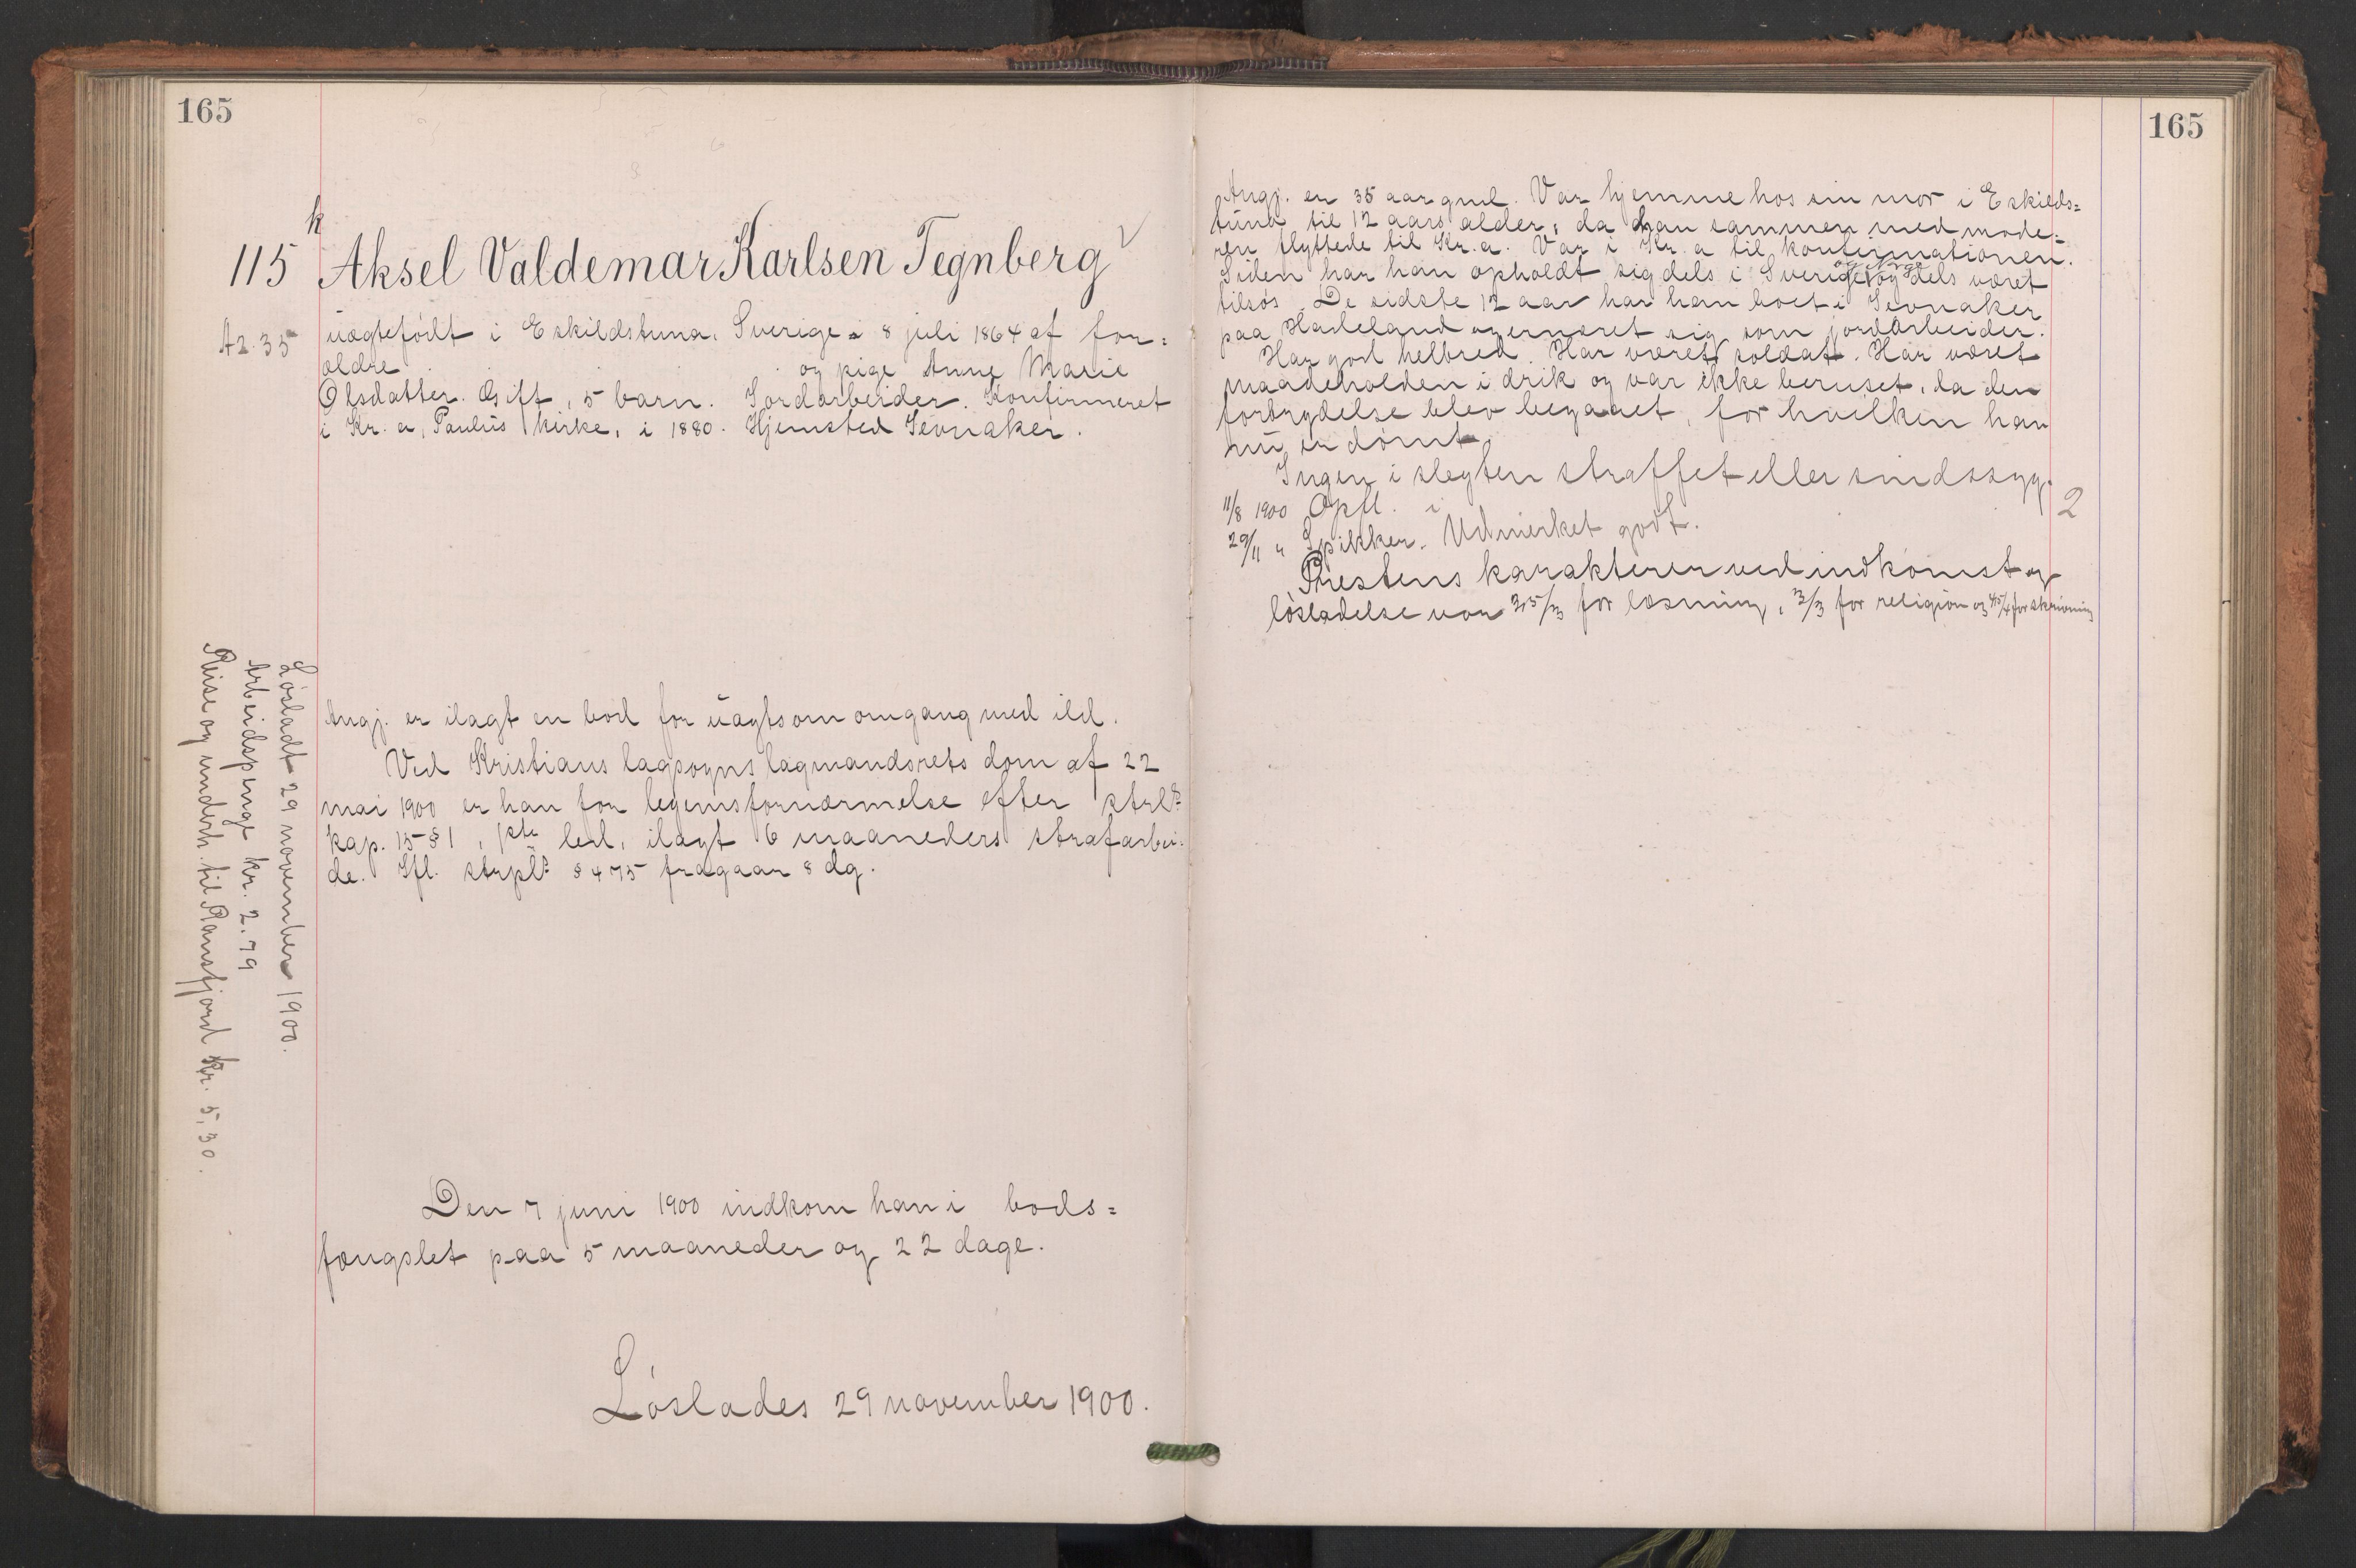 165
k
115 Aksel Valdemar Karlsen Tegnberg
A2.35
uægtefödt i Eskildstuna, Sverige 8 juli 1864 af for=
ældre og pige Anne Marie
Olsdatter. Gift, 5 barn. Jordarbeider. Konfirmeret
i Kr.a, Paulus kirke, i 1880. Hjemsted Jevnaker.
Lösladt 29 november 1900.
Arbeidspenge kr. 2.79
Reise og undersh. til Ransfjord kr. 5,30.
Angj. er ilagt en bod for uagtsom omgang med ild.
Ved Kristians lagsogns lagmandsrets dom af 22
mai 1900 er han for legemsfornærmelse efter strl.s
kap. 15 § 1, 1ste led, ilagt 6 maaneders strafarbei-
de. Ifl. strpl.s § 475 fragaar 8 dg.
Den 7 juni 1900 indkom han i bods=
fængslet paa 5 maaneder og 22 dage.
Löslades 29 november 1900.
165
Angj. er 35 aar gml. Var hjemme hos sin mor i Eskilds=
tuna til 12 aars alder, da han sammen med mode=
ren flyttede til Kr.a. Var i Kr.a til konfirmationen.
Siden har han opholdt sig dels i Sverige og Norge og dels været
tilsös. De sidste 12 aar har han boet i Jevnaker
paa Hadeland og ernæret sig som jordarbeider.
Har god helbred. Har været soldat. Har været
maadeholden i drik og var ikke beruset, da den
forbrydelse blev begaaet, for hvilken han
nu er dömt.
Ingen i slegten straffet eller sindssyg.
11/8 1900 Opfl. i 2
29/11 " Spikker. Udmerket godt.
Prestens karakterer ved indkomst og
lösladelse var 3,5/3 for læsning, 3/3 for religion og 4,5/4 for skrivning